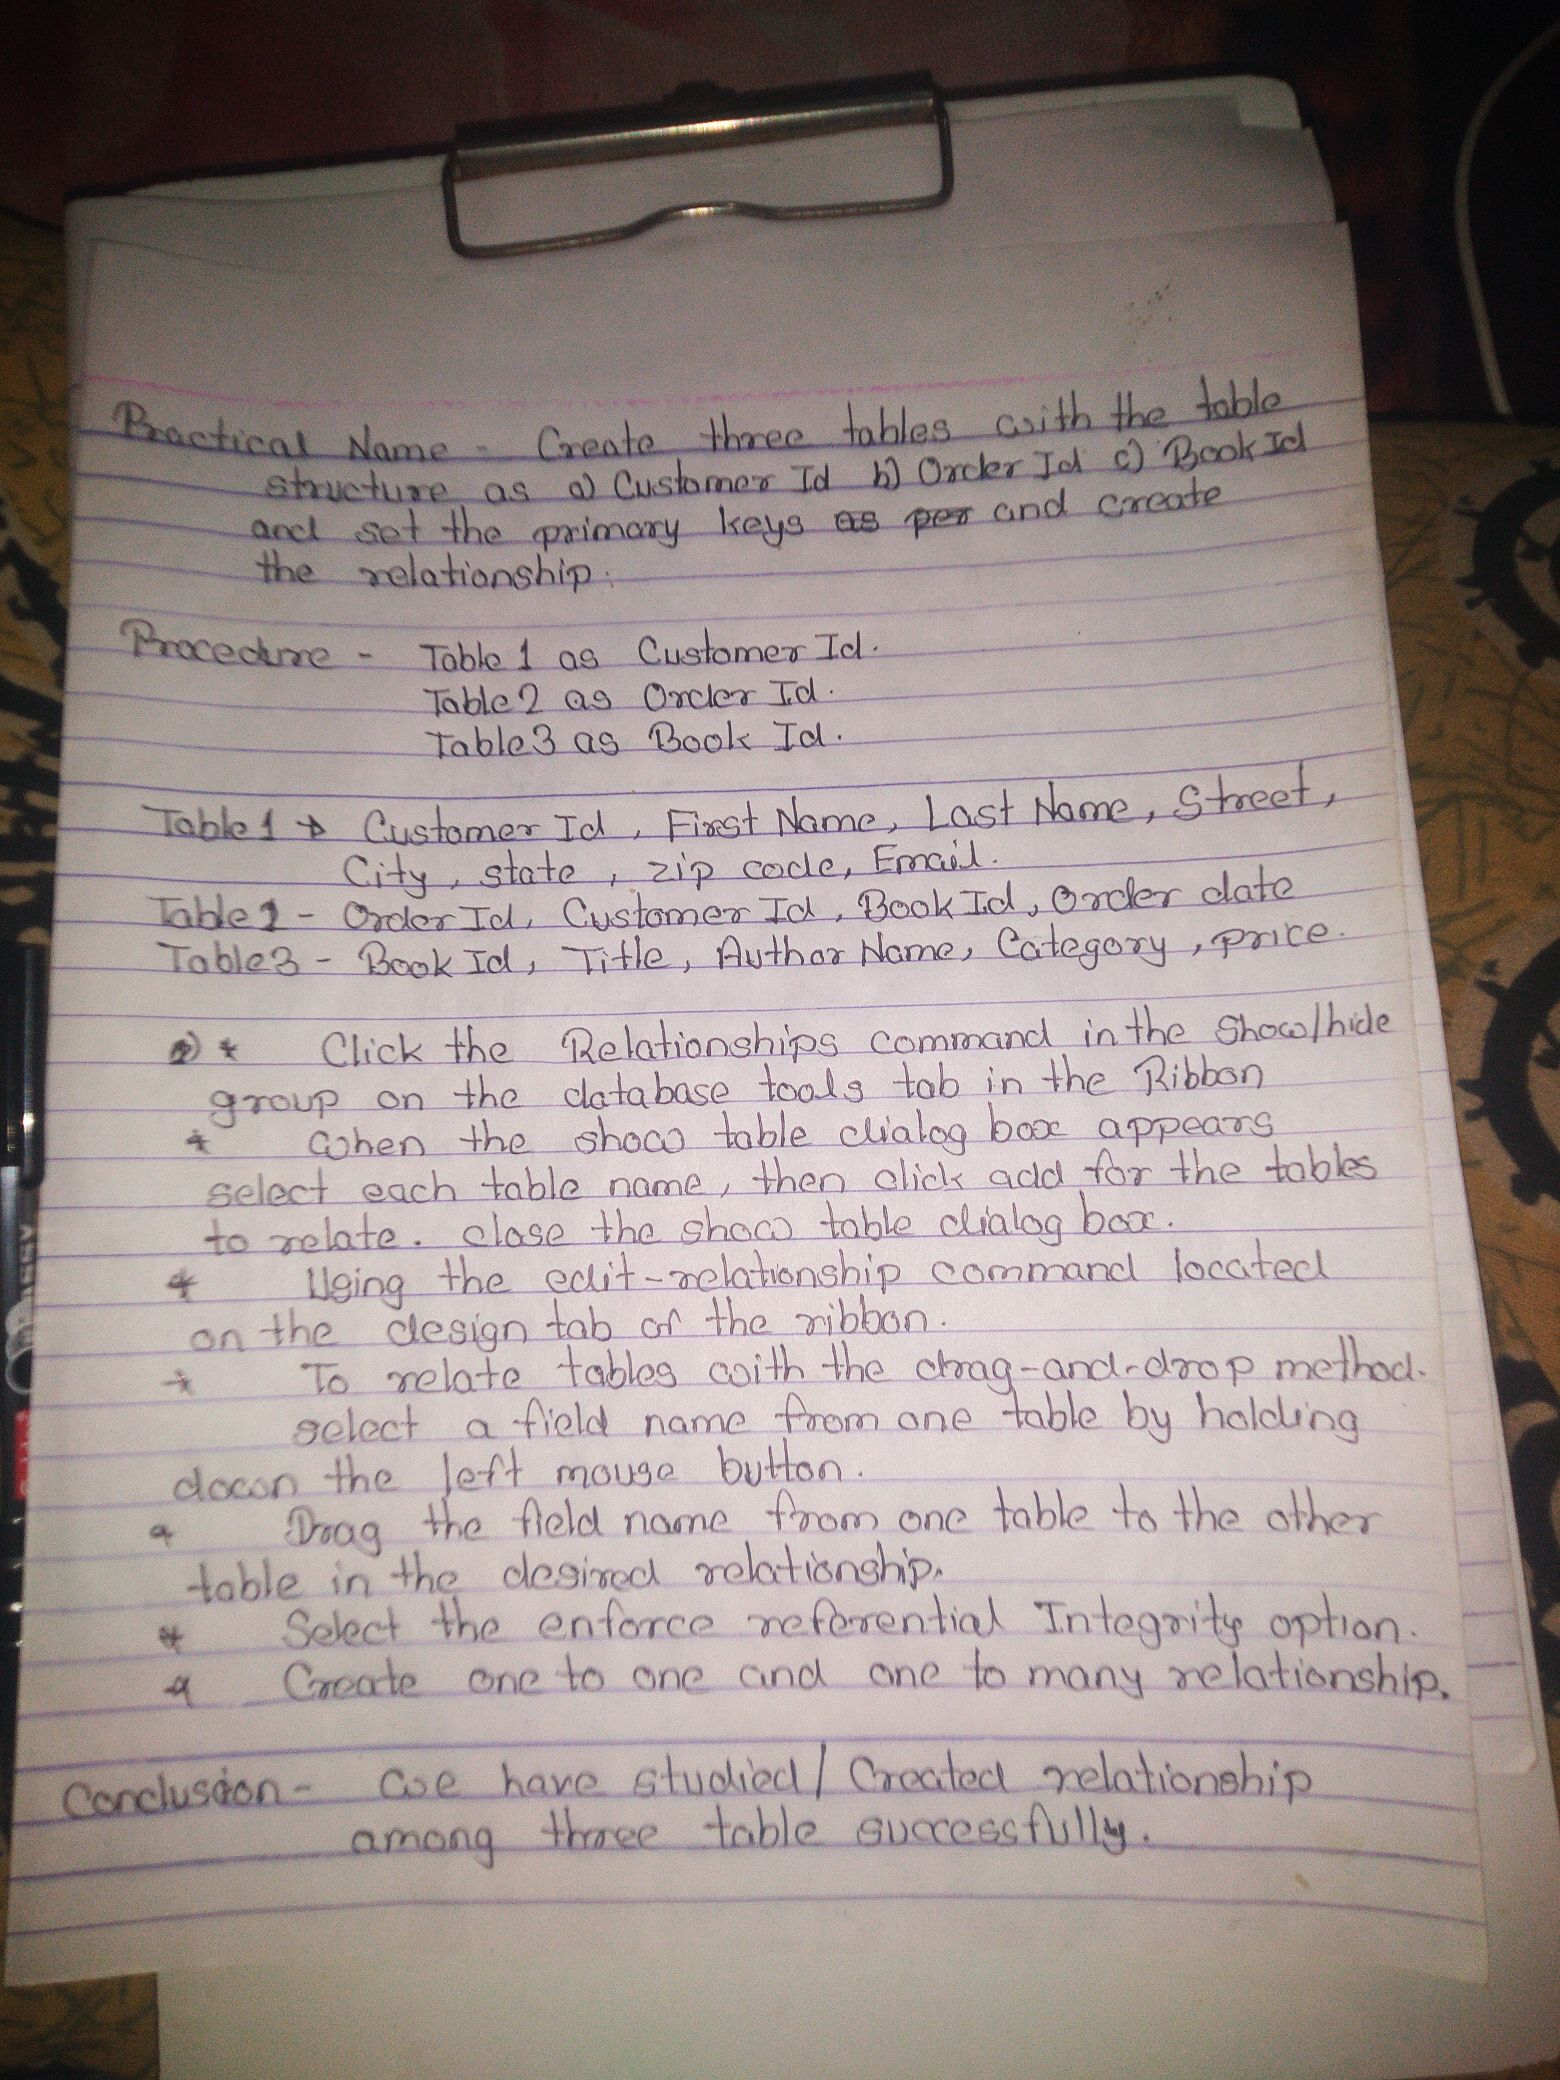 Practical Name - Create three tables with the table
structure as a) Customer Id b) Order Id c) Book Id
and set the primary keys as per and create
the relationship.
Procedure - Table 1 as Customer Id.
Table 2 as Order Id.
Table 3 as Book Id.
Table 1 → Customer Id, First Name, Last Name, Street,
City, state, zip code, Email.
Table 2 - Order Id, Customer Id, Book Id, Order date
Table 3 - Book Id, Title, Author Name, Category, price.
* Click the Relationships command in the Show/hide
group on the database tools tab in the Ribbon
* When the show table dialog box appears
select each table name, then click add for the tables
to relate. close the show table dialog box.
* Using the edit-relationship command located
on the design tab of the ribbon.
* To relate tables with the drag-and-drop method.
select a field name from one table by holding
down the left mouse button.
* Drag the field name from one table to the other
table in the desired relationship.
* Select the enforce referential Integrity option.
* Create one to one and one to many relationship.
Conclusion - We have studied / Created relationship
among three table successfully.